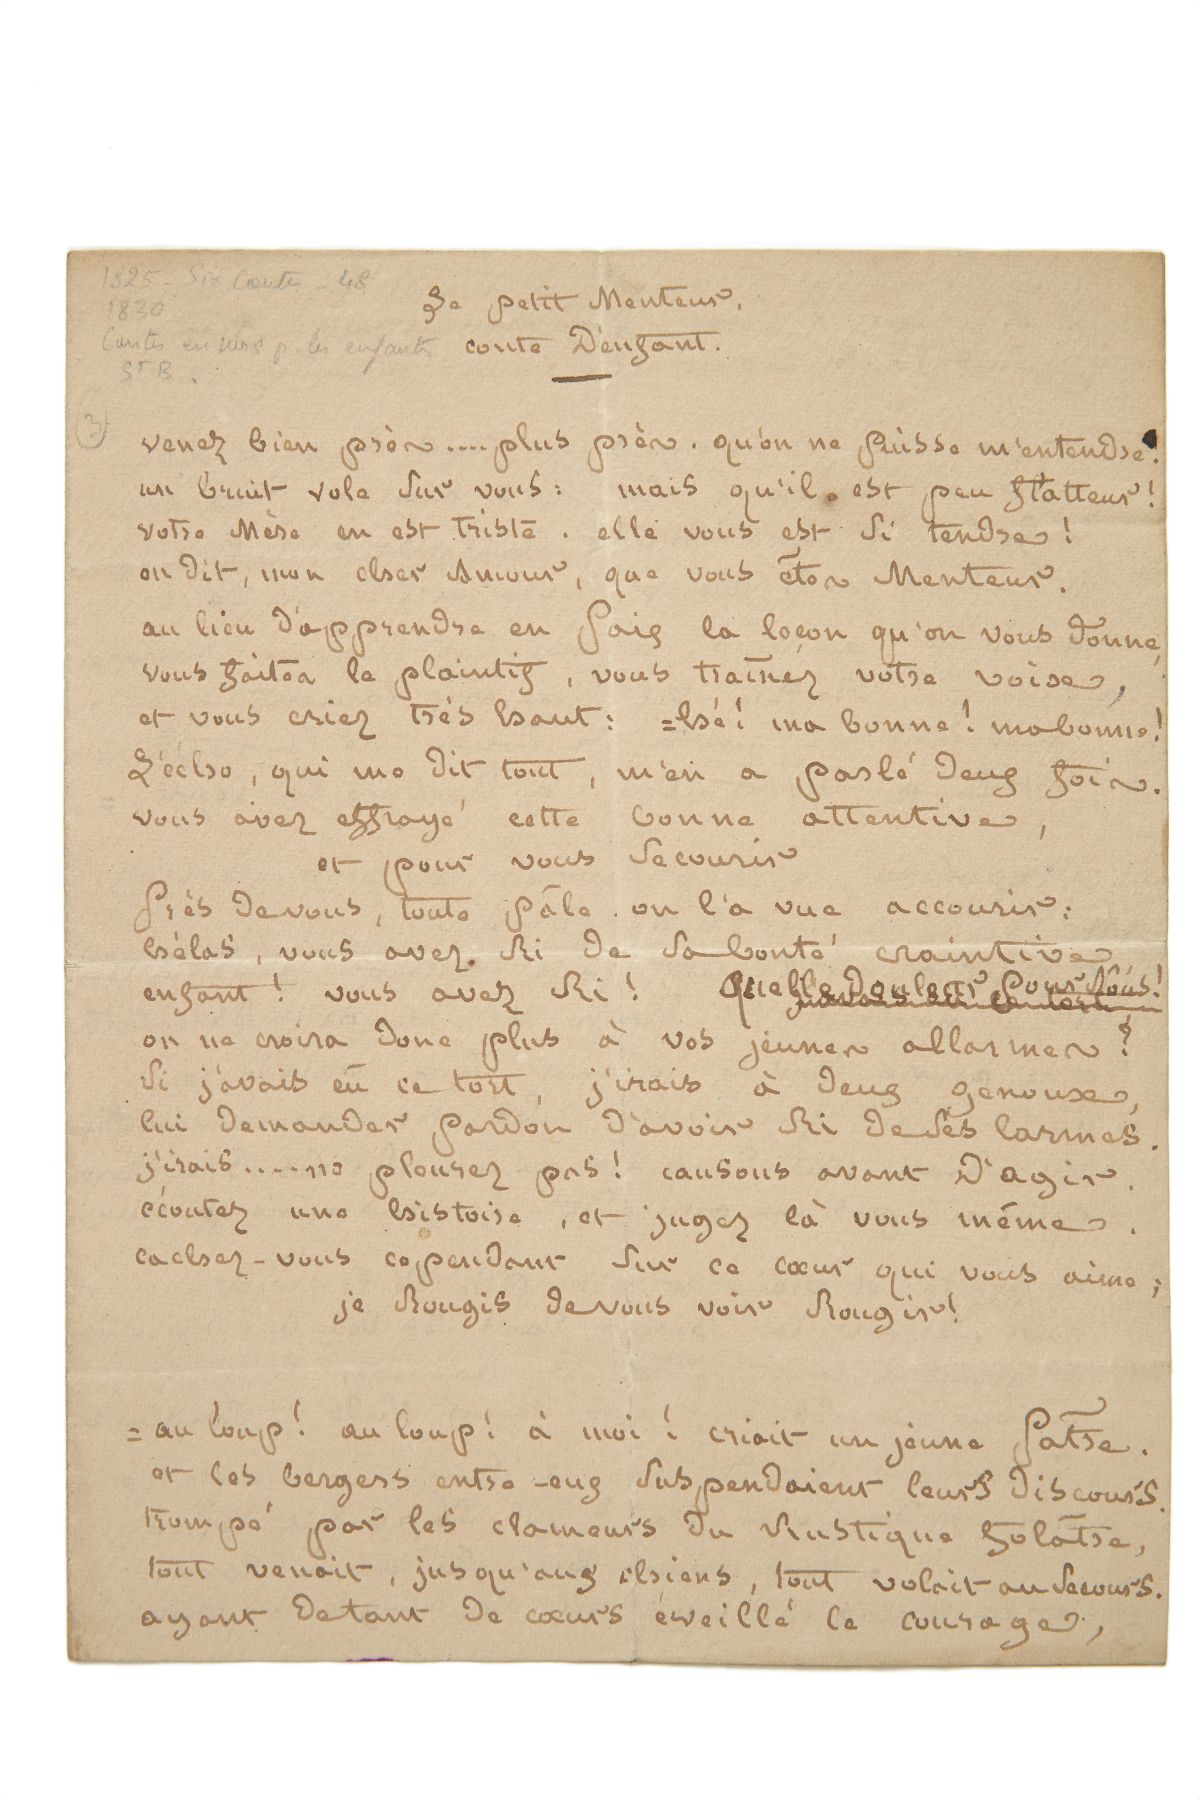 1825 - Six Contes - 48
1830
Contes en vers p. les enfants
St B.
3
Le petit Menteur.
conte D'enfant.
venez bien près .... plus près. qu'on ne Puisse m'entendre!
un bruit vole sur vous: mais qu'il est peu flatteur!
votre Mère en est triste. elle vous est si tendre!
on dit, mon cher Amour, que vous êtes Menteur.
au lieu d'apprendre en Paix la leçon qu'on vous donne,
vous faites le plaintif, vous traînez votre voix,
et vous criez très haut: = hé! ma bonne! ma bonne!
L'écho, qui me dit tout, m'en a parlé deux fois.
vous avez effrayé cette bonne attentive,
et pour vous secourir
Près de vous, toute Pâle. on l'a vue accourir:
hélas, vous avez Ri de sa bonté craintive
enfant! vous avez Ri! Quelle Douleur Pour Nous!
on ne croira donc plus à vos jeunes allarmes?
si j'avais eû ce tort, j'irais à deux genoux,
lui demander pardon d'avoir Ri de ses larmes.
j'irais ..... ne pleurez pas! causons avant D'agir.
écoutez une histoire, et jugez là vous même.
cachez-vous cependant sur ce cœur qui vous aime;
je Rougis de vous voir Rougir!
= au loup! au loup! à moi! criait un jeune Patre.
et les bergers entre-eux suspendaient leurs discours.
trompé par les clameurs du Rustique folâtre,
tout venait, jusqu'aux chiens, tout volait au secours.
ayant de tant de cœurs éveillé le courage,